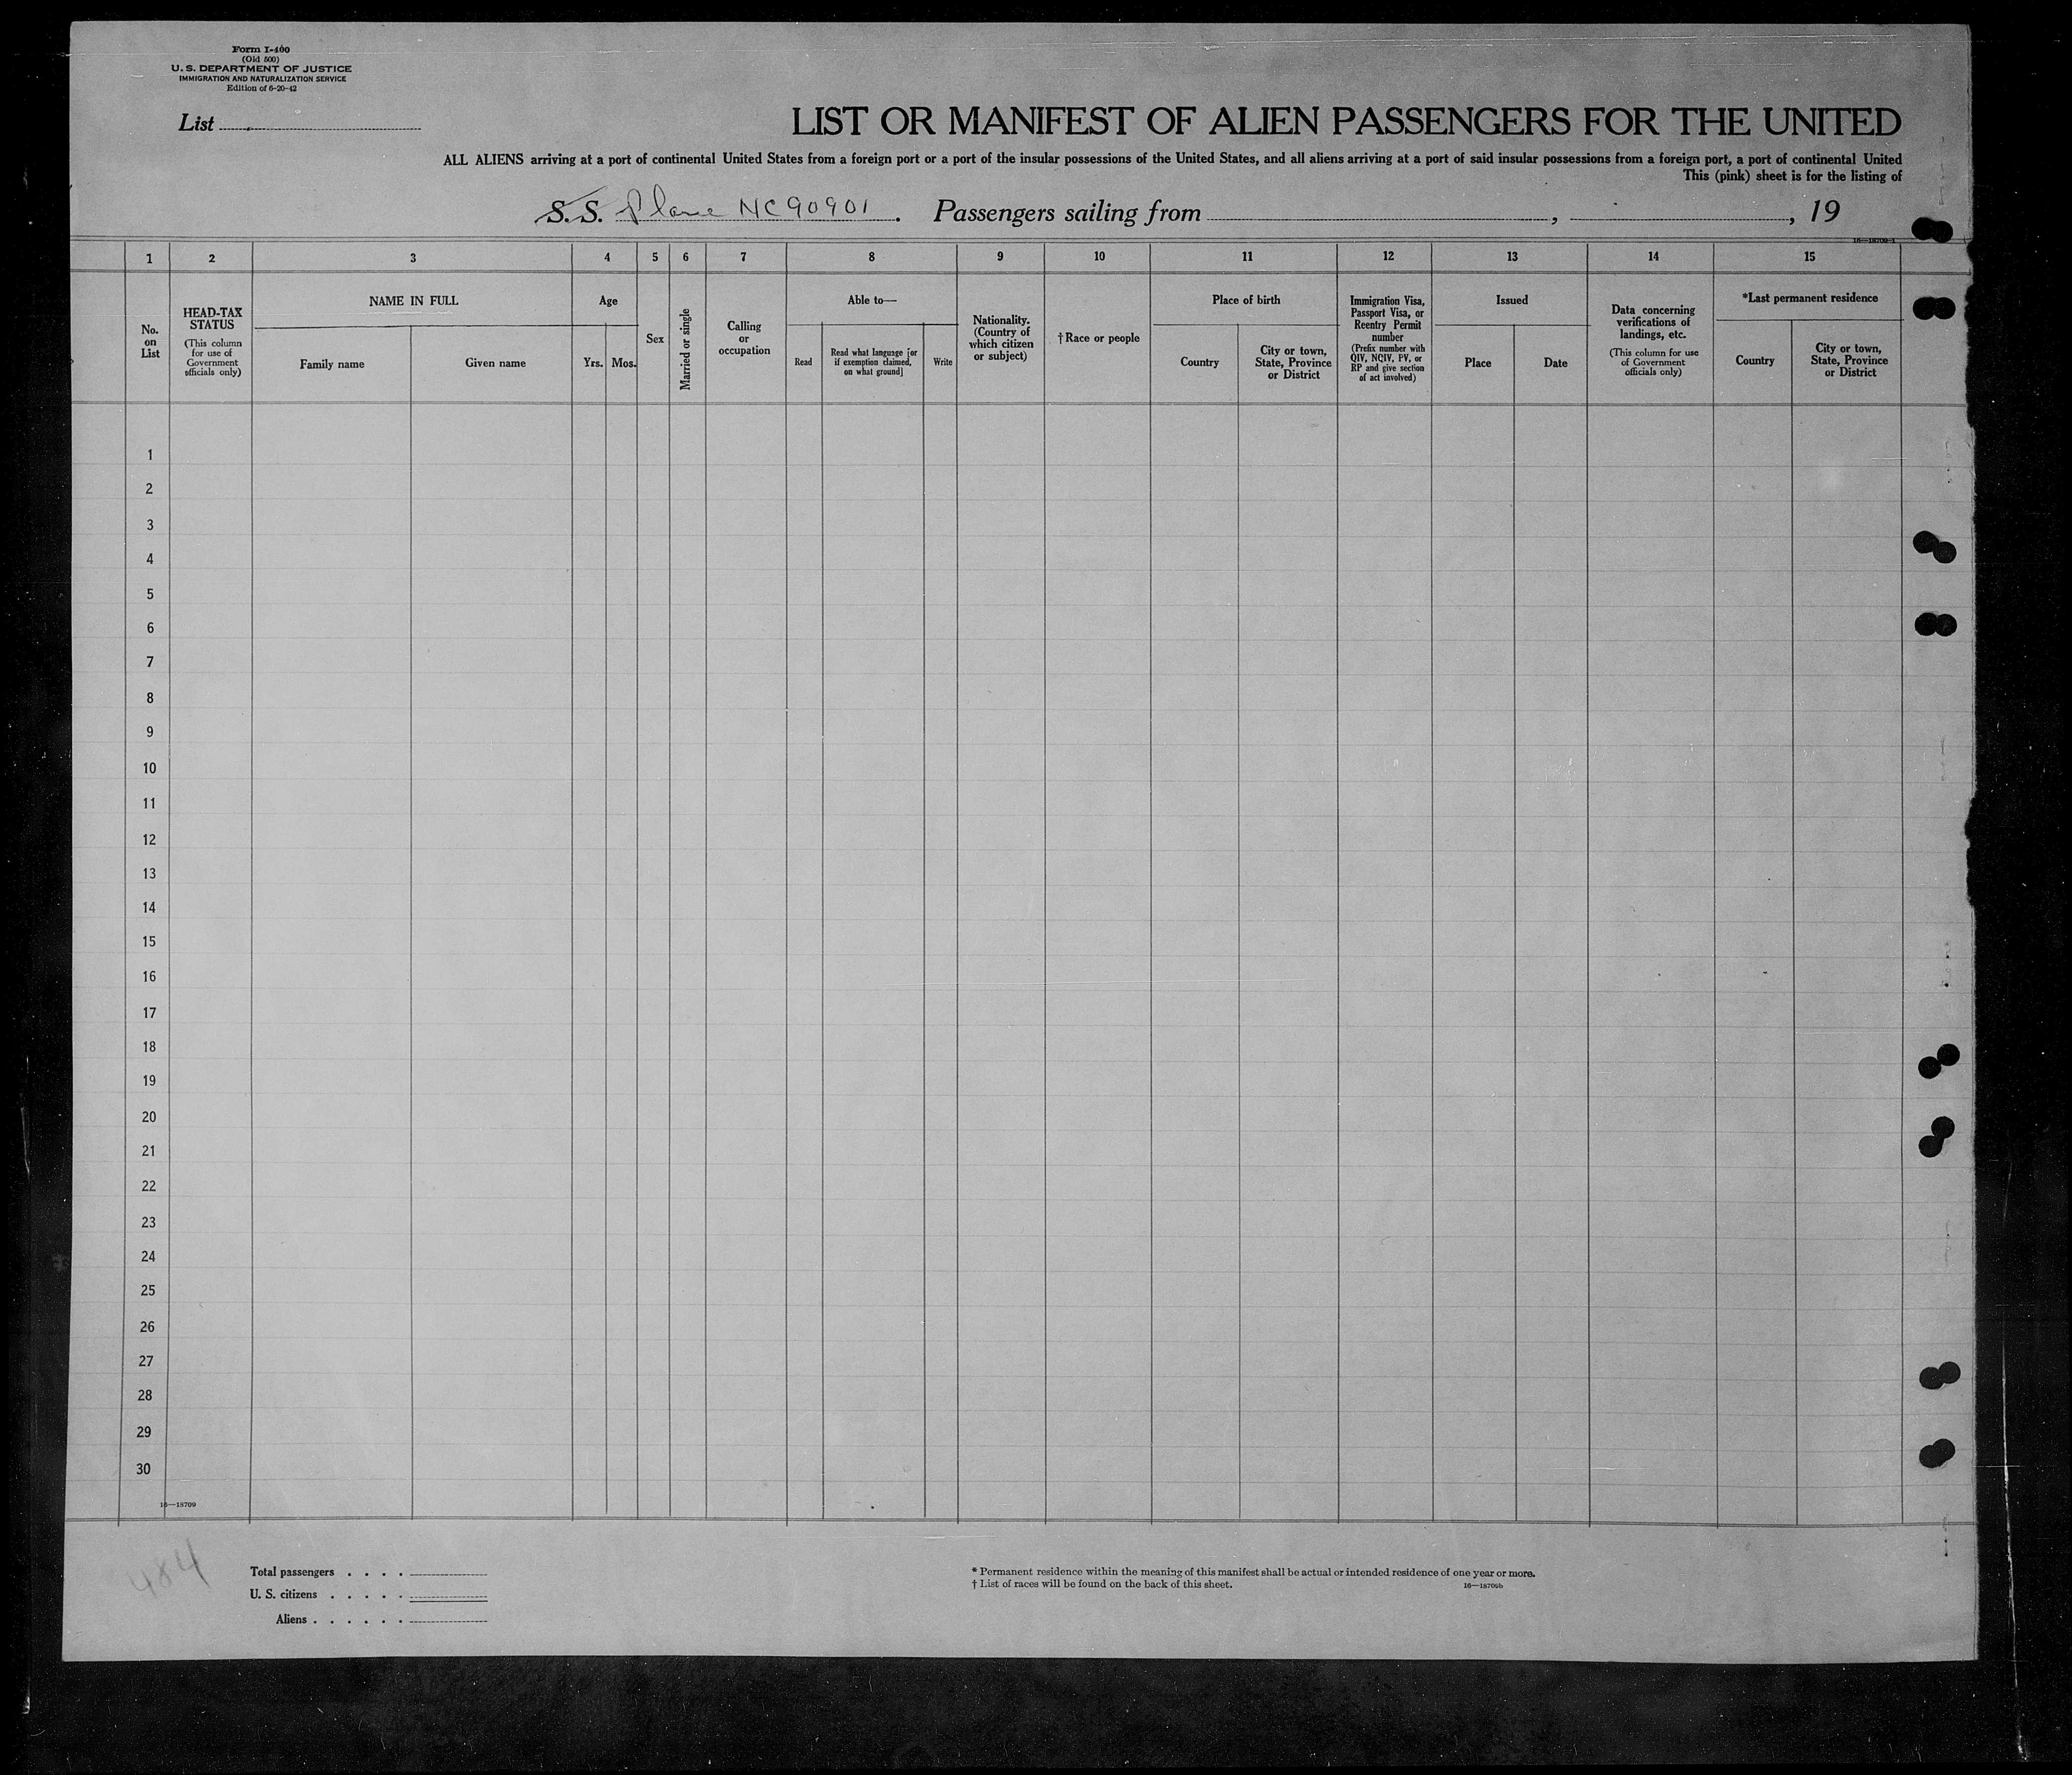 Form I-400
(Old 500)
U. S. DEPARTMENT OF JUSTICE
IMMIGRATION AND NATURALIZATION SERVICE
Edition of 6-20-42
List
LIST OR MANIFEST OF ALIEN PASSENGERS FOR THE UNITED
ALL ALIENS arriving at a port of continental United States from a foreign port or a port of the insular possessions of the United States, and all aliens arriving at a port of said insular possessions from a foreign port, a port of continental United
This (pink) sheet is for the listing of
S.S. Plane NC90901. Passengers sailing from , , 19
16—18709-1
1 2 3 4 5 6 7 8 9 10 11 12 13 14 15
No.
on
List
HEAD-TAX
STATUS
(This column
for use of
Government
officials only)
NAME IN FULL
Family name
Given name
Age
Yrs.
Mos.
Sex
Married or single
Calling
or
occupation
Able to—
Read
Read what language [or
if exemption claimed,
on what ground]
Write
Nationality.
(Country of
which citizen
or subject)
†Race or people
Place of birth
Country
City or town,
State, Province
or District
Immigration Visa,
Passport Visa, or
Reentry Permit
number
(Prefix number with
QIV, NQIV, PV, or
RP and give section
of act involved)
Issued
Place
Date
Data concerning
verifications of
landings, etc.
(This column for use
of Government
officials only)
*Last permanent residence
Country
City or town,
State, Province
or District
1
2
3
4
5
6
7
8
9
10
11
12
13
14
15
16
17
18
19
20
21
22
23
24
25
26
27
28
29
30
16—18709
484
Total passengers . . . .
U. S. citizens . . . . .
Aliens . . . . . .
* Permanent residence within the meaning of this manifest shall be actual or intended residence of one year or more.
† List of races will be found on the back of this sheet.
16—18709b